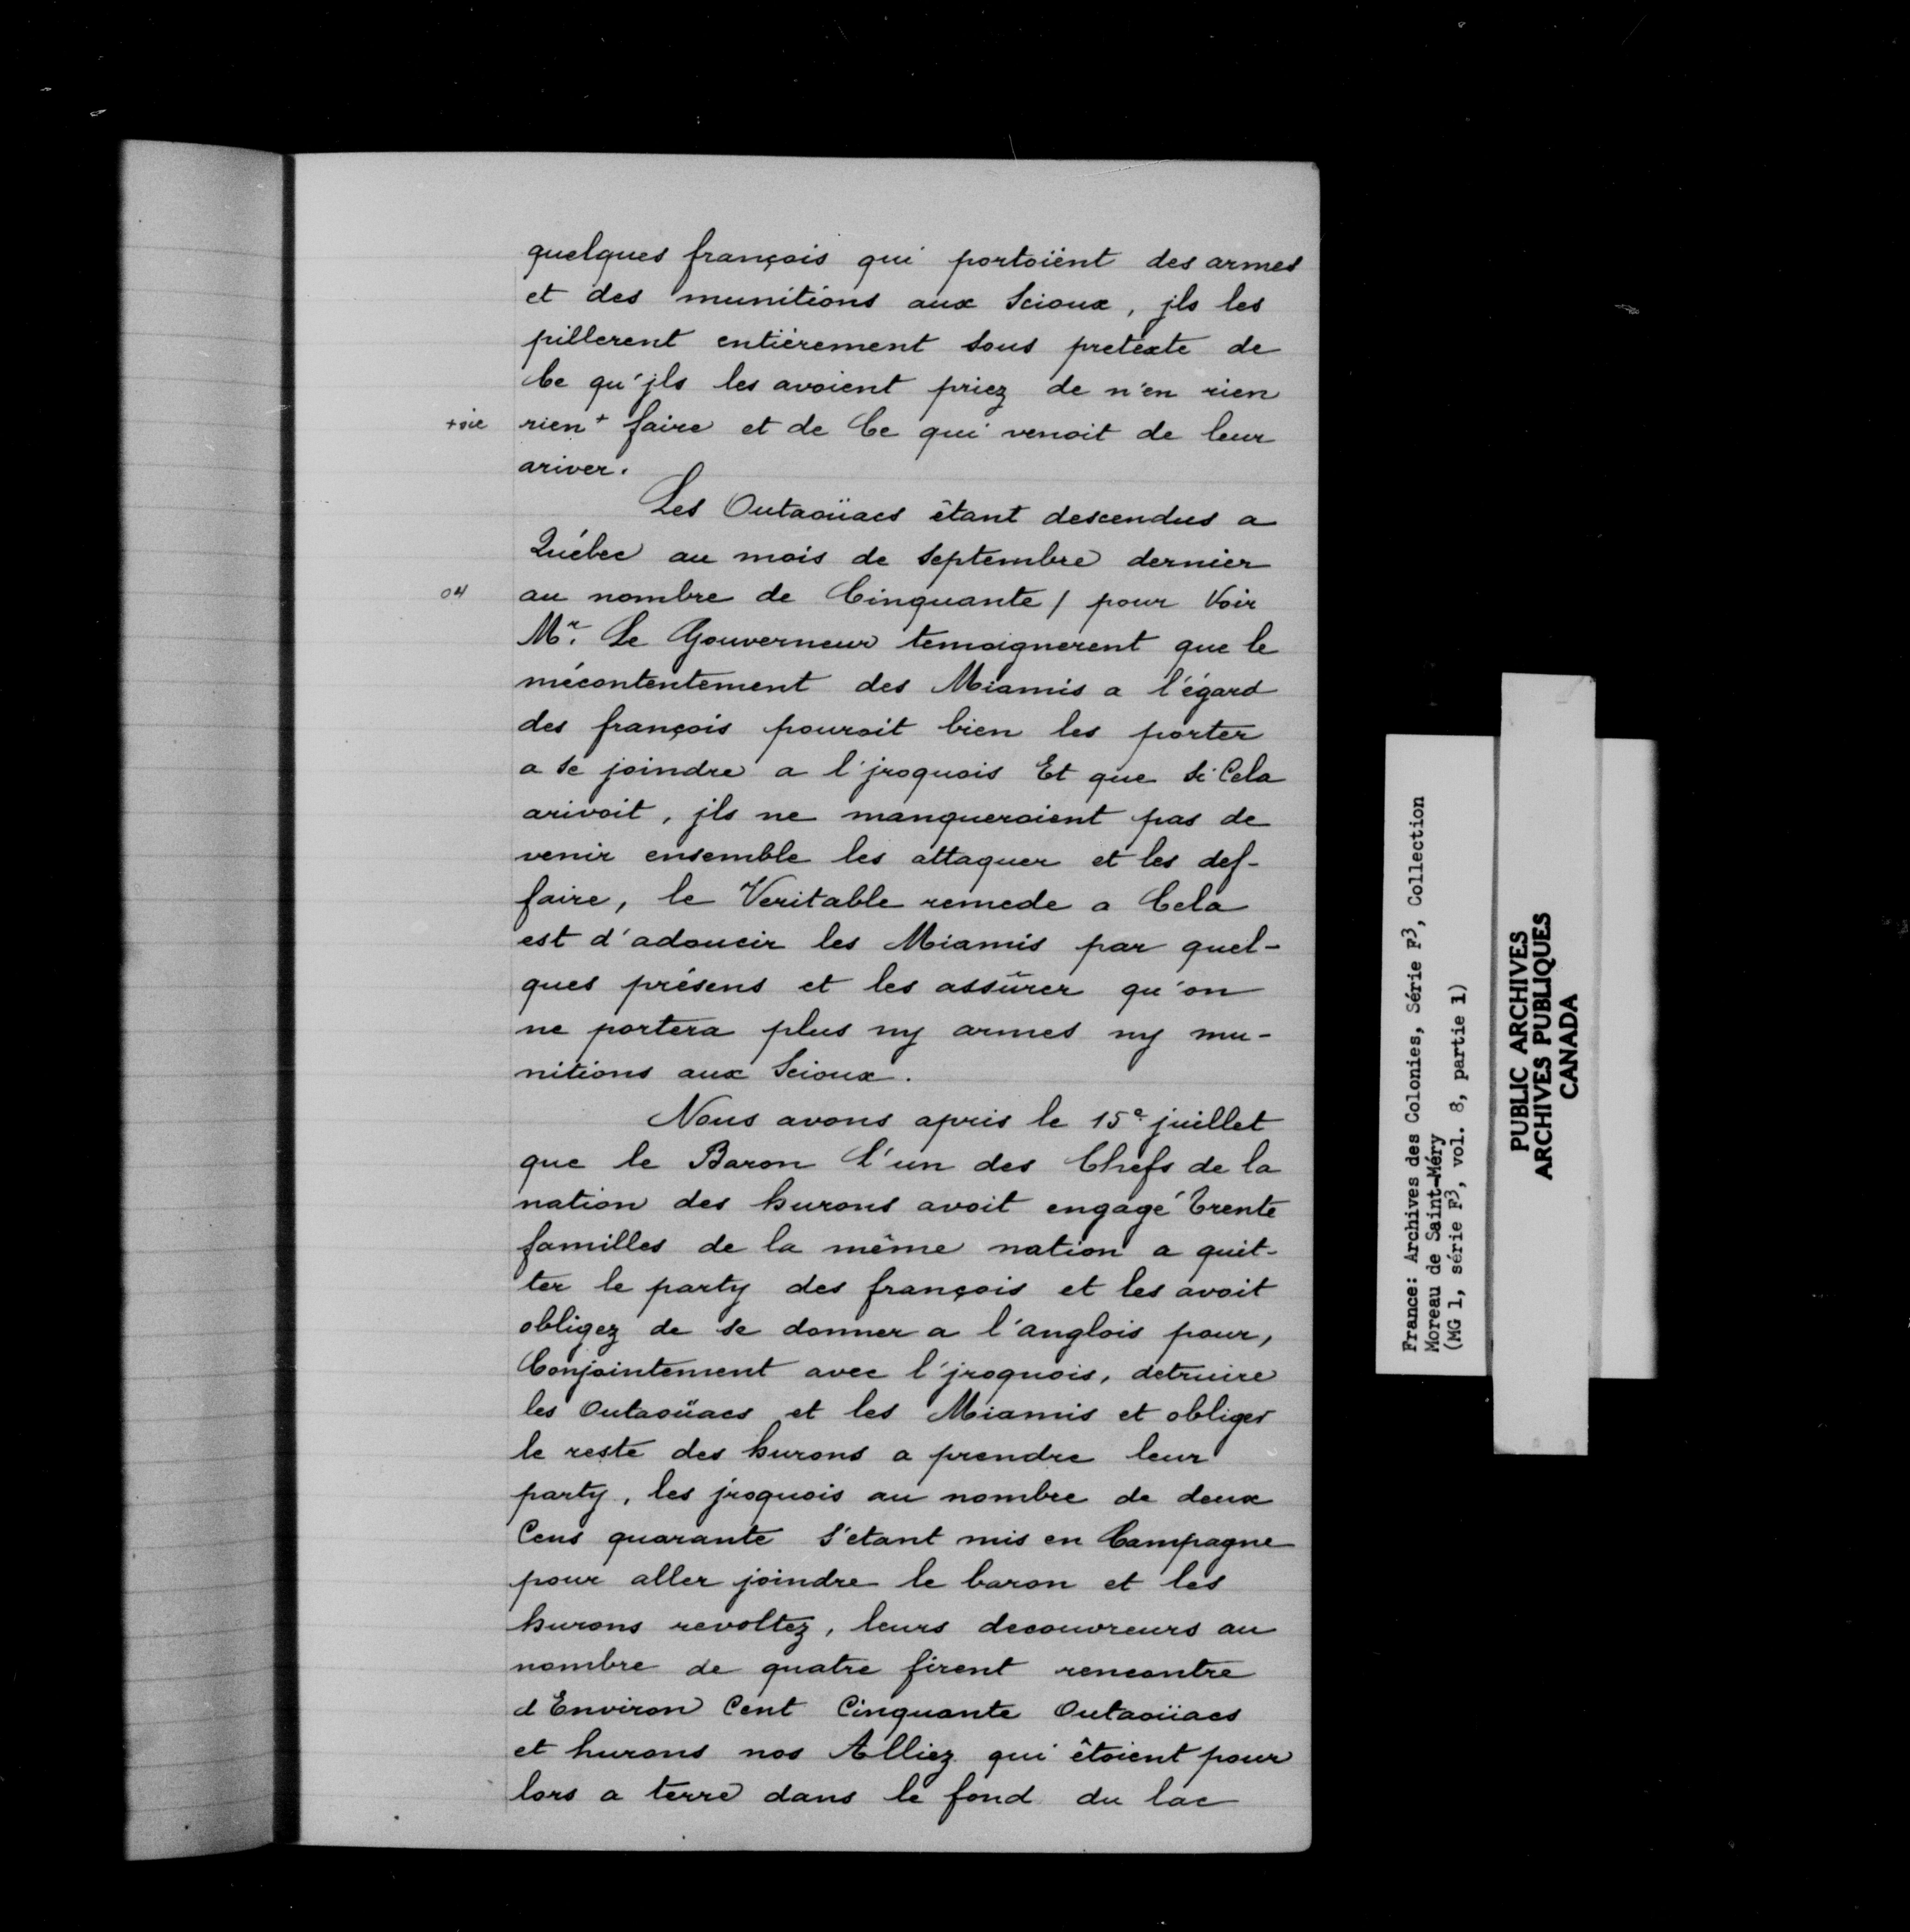 quelques françois qui portoient des armes
et des munitions aux Scioux, jls les
pillerent entiérement sous pretexte de
Ce qu'jls les avoient priez de n'en rien
+sic
rien + faire et de Ce qui venoit de leur
ariver.
Les Outaoüacs êtant descendus a
Québec au mois de septembre dernier
04
au nombre de Cinquante / pour Voir
Mr. Le Gouverneur temoignerent que le
mécontentement des Miamis a l'égard
des françois pouroit bien les porter
a se joindre a l'jroquois Et que si Cela
arivoit, jls ne manqueroient pas de
venir ensemble les attaquer et les def-
faire, le Veritable remede a Cela
est d'adoucir les Miamis par quel-
ques présens et les assûrer qu'on
ne portera plus ny armes ny mu-
nitions aux Scioux.
Nous avons apris le 15e juillet
que le Baron l'un des Chefs de la
nation des hurons avoit engagé Trente
familles de la même nation a quit-
ter le party des françois et les avoit
obligez de se donner a l'anglois pour,
Conjointement avec l'jroquois, detruire
les Outaoüacs et les Miamis et obliger
le reste des hurons a prendre leur
party, les jroquois au nombre de deux
Cens quarante s'etant mis en Campagne
pour aller joindre le baron et les
hurons revoltez, leurs decouvreurs au
nombre de quatre firent rencontre
d'Environ Cent Cinquante Outaoüacs
et hurons nos Alliez qui êtoient pour
lors a terre dans le fond du lac
France: Archives des Colonies, Série F3, Collection
Moreau de Saint-Méry
(MG 1, série F3, vol. 8, partie 1)
PUBLIC ARCHIVES
ARCHIVES PUBLIQUES
CANADA